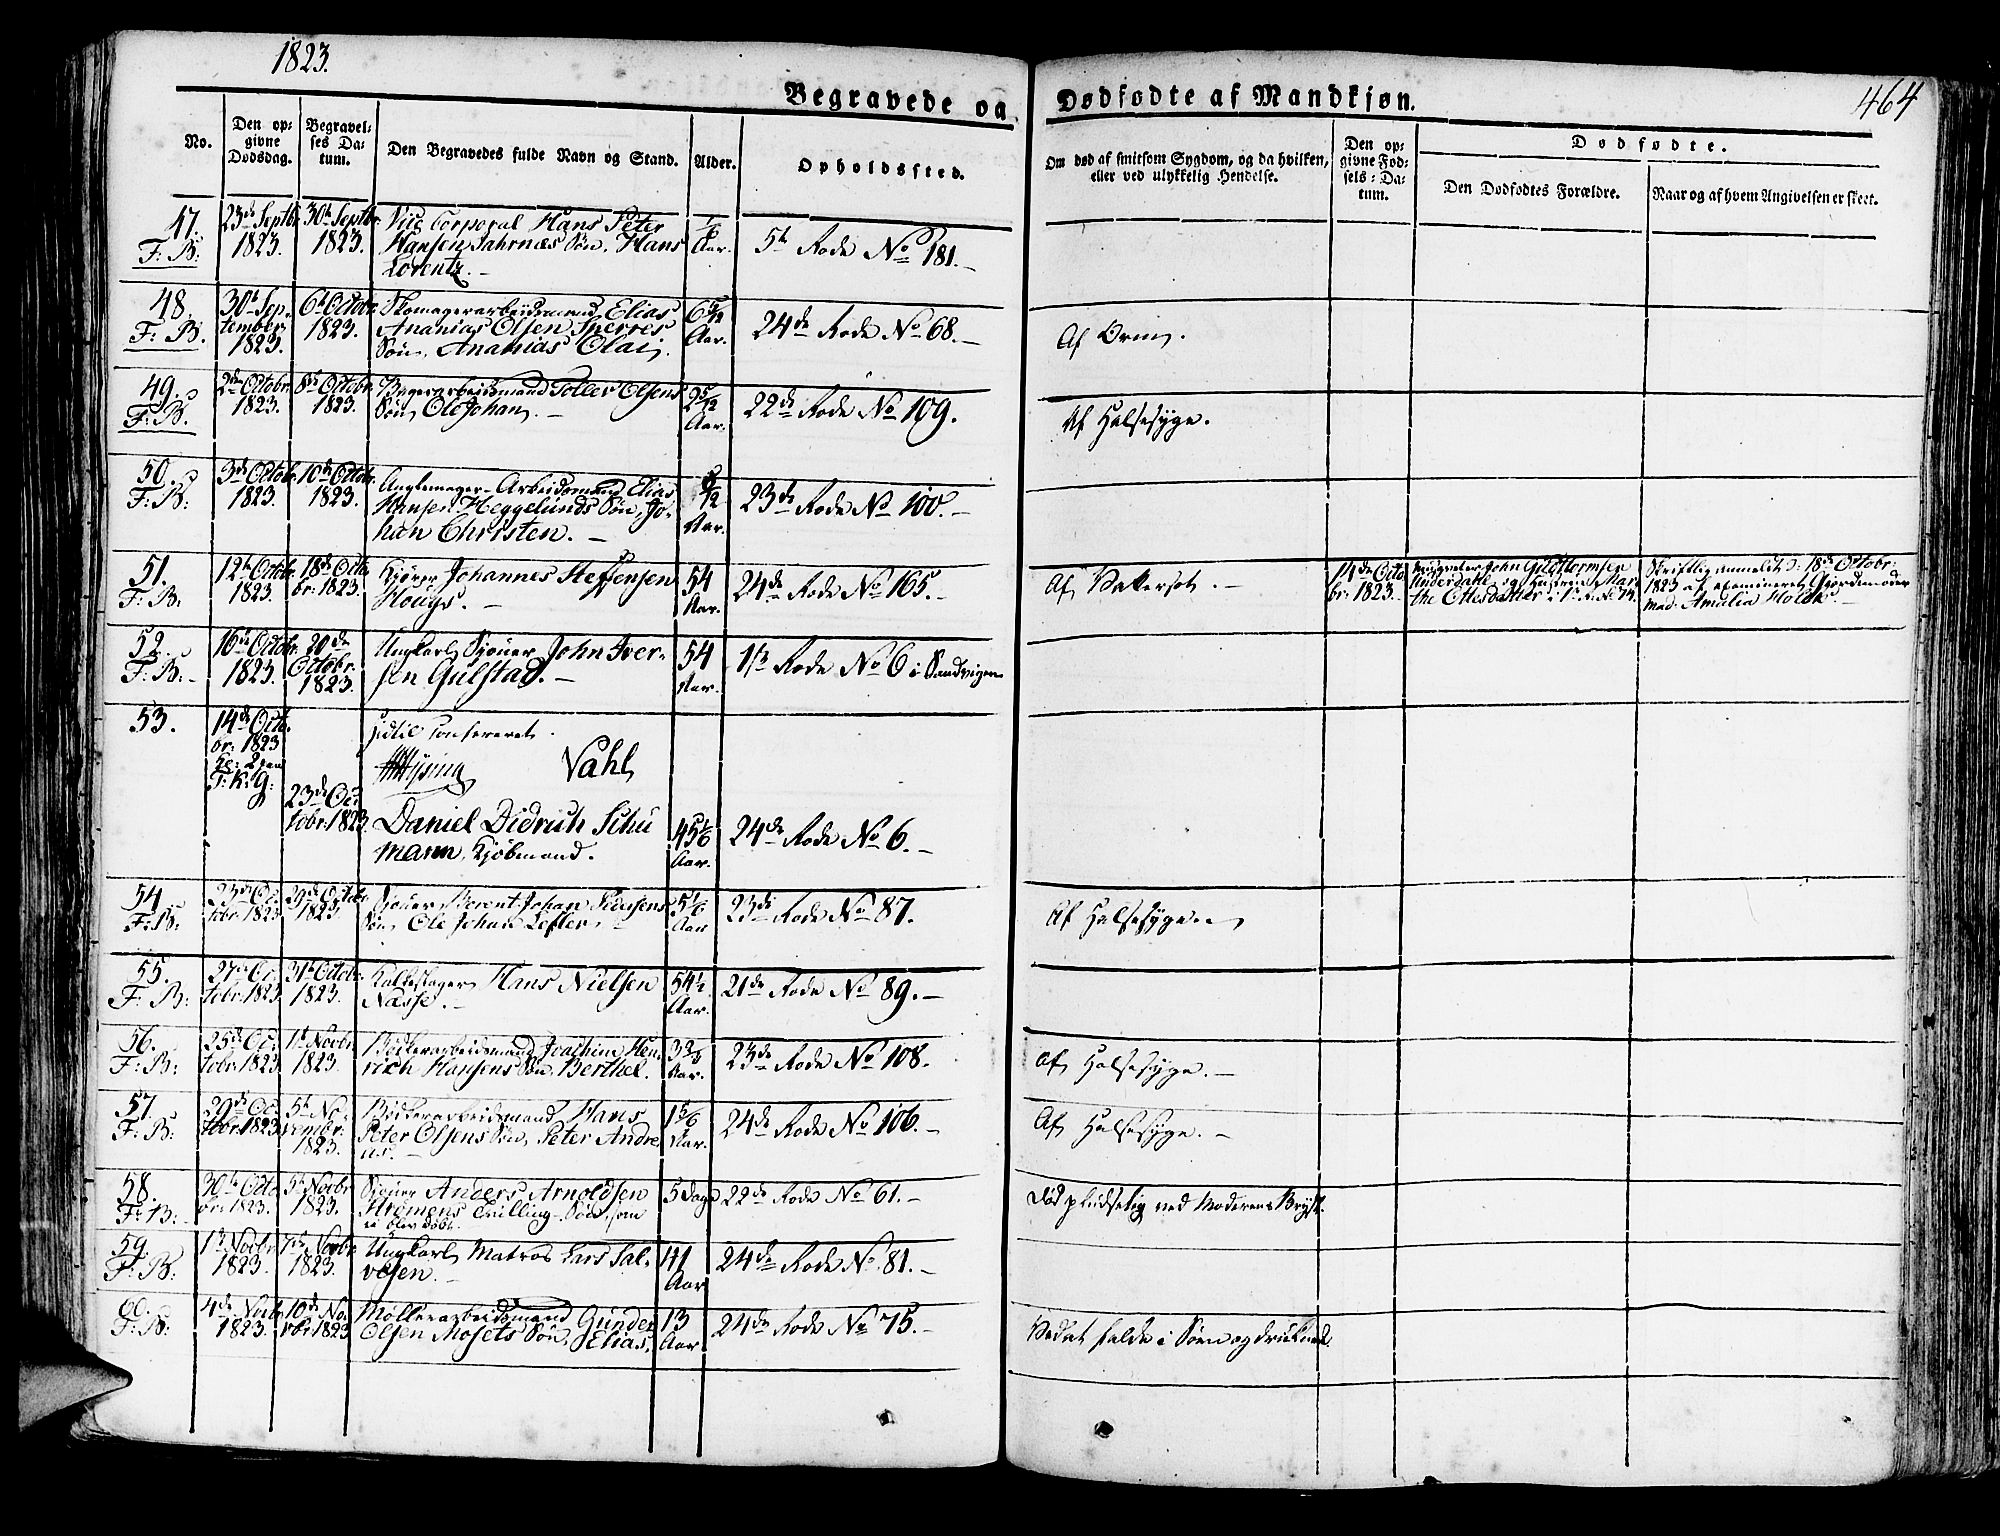 1823.
464
Begravede og Dødfødte af Mandkjøn.
No.
Den op-
givne
Dødsdag.
Begravel-
ses Da-
tum.
Den Begravedes fulde Navn og Stand.
Alder.
Opholdssted.
Om død af smitsom Sygdom, og da hvilken,
eller ved ulykkelig Hendelse.
Den op-
givne Fød-
sels-Da-
tum.
Dødfødte.
Den Dødfødtes Forældre.
Naar og af hvem Angivelsen er skeet.
47.
F: B:
23de Septbr
1823.
30te Septbr
1823.
Vice Corporal Hans Peter
Hansen Jahrnæs Søn, Hans
Lorentz.
Aar.
5te Rode No 181.
48.
F. B.
30te Sep-
tember
1823.
6te Octobr
1823.
Skomagerarbeidsmand Elias
Ananias Olsen Sperres
Søn, Ananias Olai.
Aar.
24de Rode No 68.
Af Orm.
49.
F. B.
2den Octobr.
1823.
8de Octobr.
1823.
Bagerarbeidsmand Toller Olsens
Søn Ole Johan.
2 5/12
Aar.
22de Rode No 109.
Af Halsesyge.
50.
F: B:
3de Octobr.
1823.
10de Octobr.
1823.
Anglemager-Arbeidsmand Elias
Hansen Heggelunds Søn, Jo-
han Christen.
Aar.
23de Rode No 100.
51.
F: B:
12te Octobr.
1823.
18de Octo
br: 1823.
Kjører Johannes Steffensen
Hougs.
54
Aar.
24de Rode No 165.
Af Vattersot.
14de Octo
br: 1823.
John Guldtormsen
the Ottesdatter i
Skriftlig anmeldt d: 18de Octobr:
1823 af examineret Gjordemoder
Mad: Amalia Holck.
52.
F: B:
16de Octobr.
1823.
20de
Octobr.
1823.
Ungkarl Sjouer John Iver-
sen Gulstad.
54
Aar.
1ste Rode No 6 i Sandvigen
53.
14de Octo
br: 1823
T: K: G:
23de Oc-
tobr: 1823
Vahl
Daniel Didrich Schu
mann, Kjøbmand.
45 1/6
Aar.
24de Rode No 6.
54.
F: B:
23de Oc-
tobr: 1823
29de Octobr
1823.
Sjouer Berent Johan Steensens
Søn Ole Johan Lefler.
5 1/6
Aar
23de Rode No 87.
Af Halsesyge.
55.
F: B:
27de Oc-
tobr. 1823
31te Octobr.
1823.
Kalkeslager Hans Nielsen
Næsse.
54 1/2
Aar.
21de Rode No 89.
56.
F: B:
25de Oc-
tobr. 1823
1te Novbr
1823.
Bødkerarbeidsmand Joachim Hen
rich Hansens Søn, Berthel.
Aar.
23de Rode No 108.
Af Halsesyge.
57.
F: B:
29de Oc-
tobr: 1823
5te No-
vembr.
1823.
Bødkerarbeidsmand Hans
Peter Olsens Søn, Peter Andre
as.
1 5/6
Aar.
24de Rode No 106.
Af Halsesyge.
58.
F: B:
30te Octo
br: 1823.
5te Novbr
1823.
Sjouer Anders Arnoldsen
Strømens Tvilling-Søn, som
ei blev døbt.
5 Dage
22de Rode No 61.
Død pludselig ved Moderens Bryst.
59.
F: B:
1te Novbr.
1823.
7de Novbr.
1823.
Ungkarl Matros Lars Sal-
vesen.
41
Aar
24de Rode No 81.
60.
F: B:
4de Novbr
1823.
10de No-
vbr: 1823
Møllerarbeidsmand Gunder
Olsen Mosets Søn, Elias.
13
Aar
24de Rode No 75.
Vadet falde i Søen og druknede.